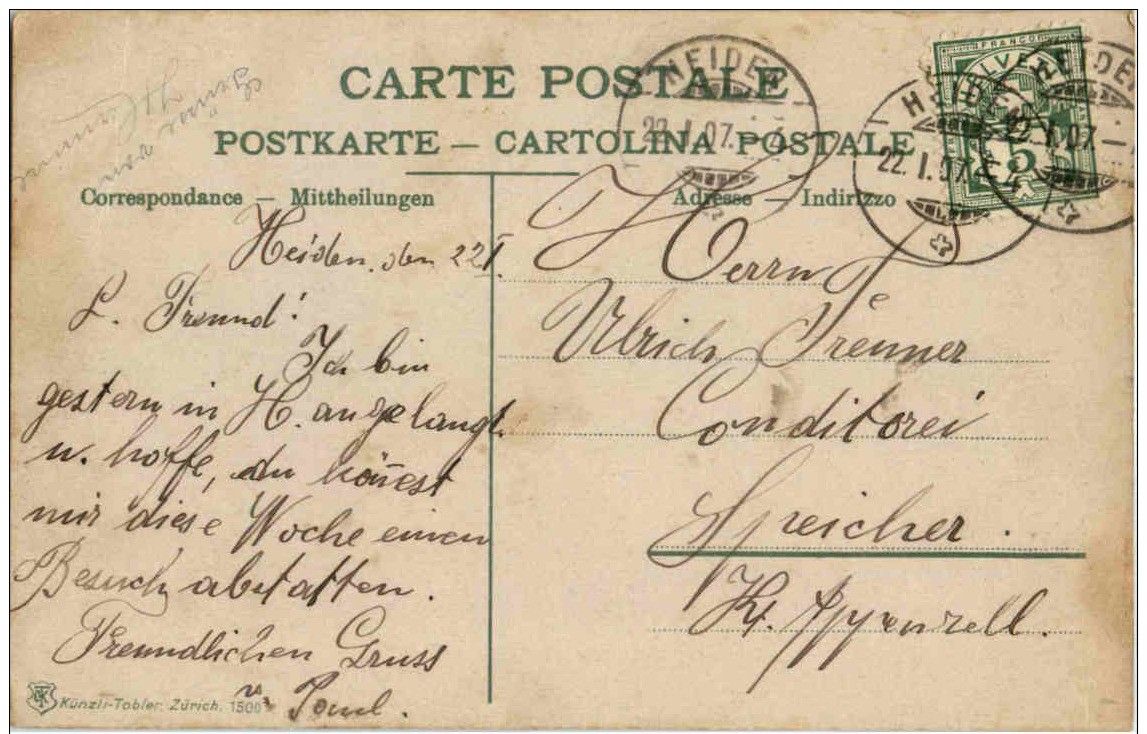 CARTE POSTALE
POSTKARTE – CARTOLINA POSTALE
Correspondance – Mittheilungen
Adresse – Indirizzo
Heiden, den 22 I.
L. Freund!
Ich bin
gestern in H. angelangt
u. hoffe, du kön̄est
mir diese Woche einen
Besuch abstatten.
Freundlichen Gruss
v.
Künzli-Tobler, Zürich. 1500
Herrn
Ulrich
Conditorei
Speicher.
Kt. Appenzell.
FRANCO
HELVETIA
5
HEIDEN
22.I.07.–4
HEIDEN
22.I.07.–4
HEIDEN
22.I.07.–